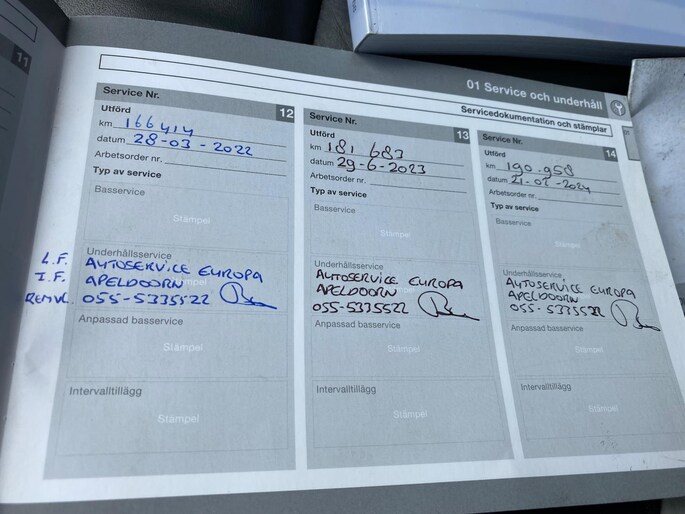 11
01 Service och underhåll
Servicedokumentation och stämplar
Service Nr. 12
Utförd
km 166414
datum 28-03-2022
Arbetsorder nr.
Typ av service
Basservice
Stämpel
Underhållsservice
L.F. AUTOSERVICE EUROPA
I.F. APELDOORN
REMVL. 055-5335522
Anpassad basservice
Stämpel
Intervalltillägg
Stämpel
Service Nr. 13
Utförd
km 181 683
datum 29-6-2023
Arbetsorder nr.
Typ av service
Basservice
Stämpel
Underhållsservice
AUTOSERVICE EUROPA
APELDOORN
055-5335522
Anpassad basservice
Stämpel
Intervalltillägg
Stämpel
Service Nr. 14
Utförd
km 190.958
datum 21-02-2024
Arbetsorder nr.
Typ av service
Basservice
Stämpel
Underhållsservice
AUTOSERVICE EUROPA
APELDOORN
055-5335522
Anpassad basservice
Stämpel
Intervalltillägg
Stämpel